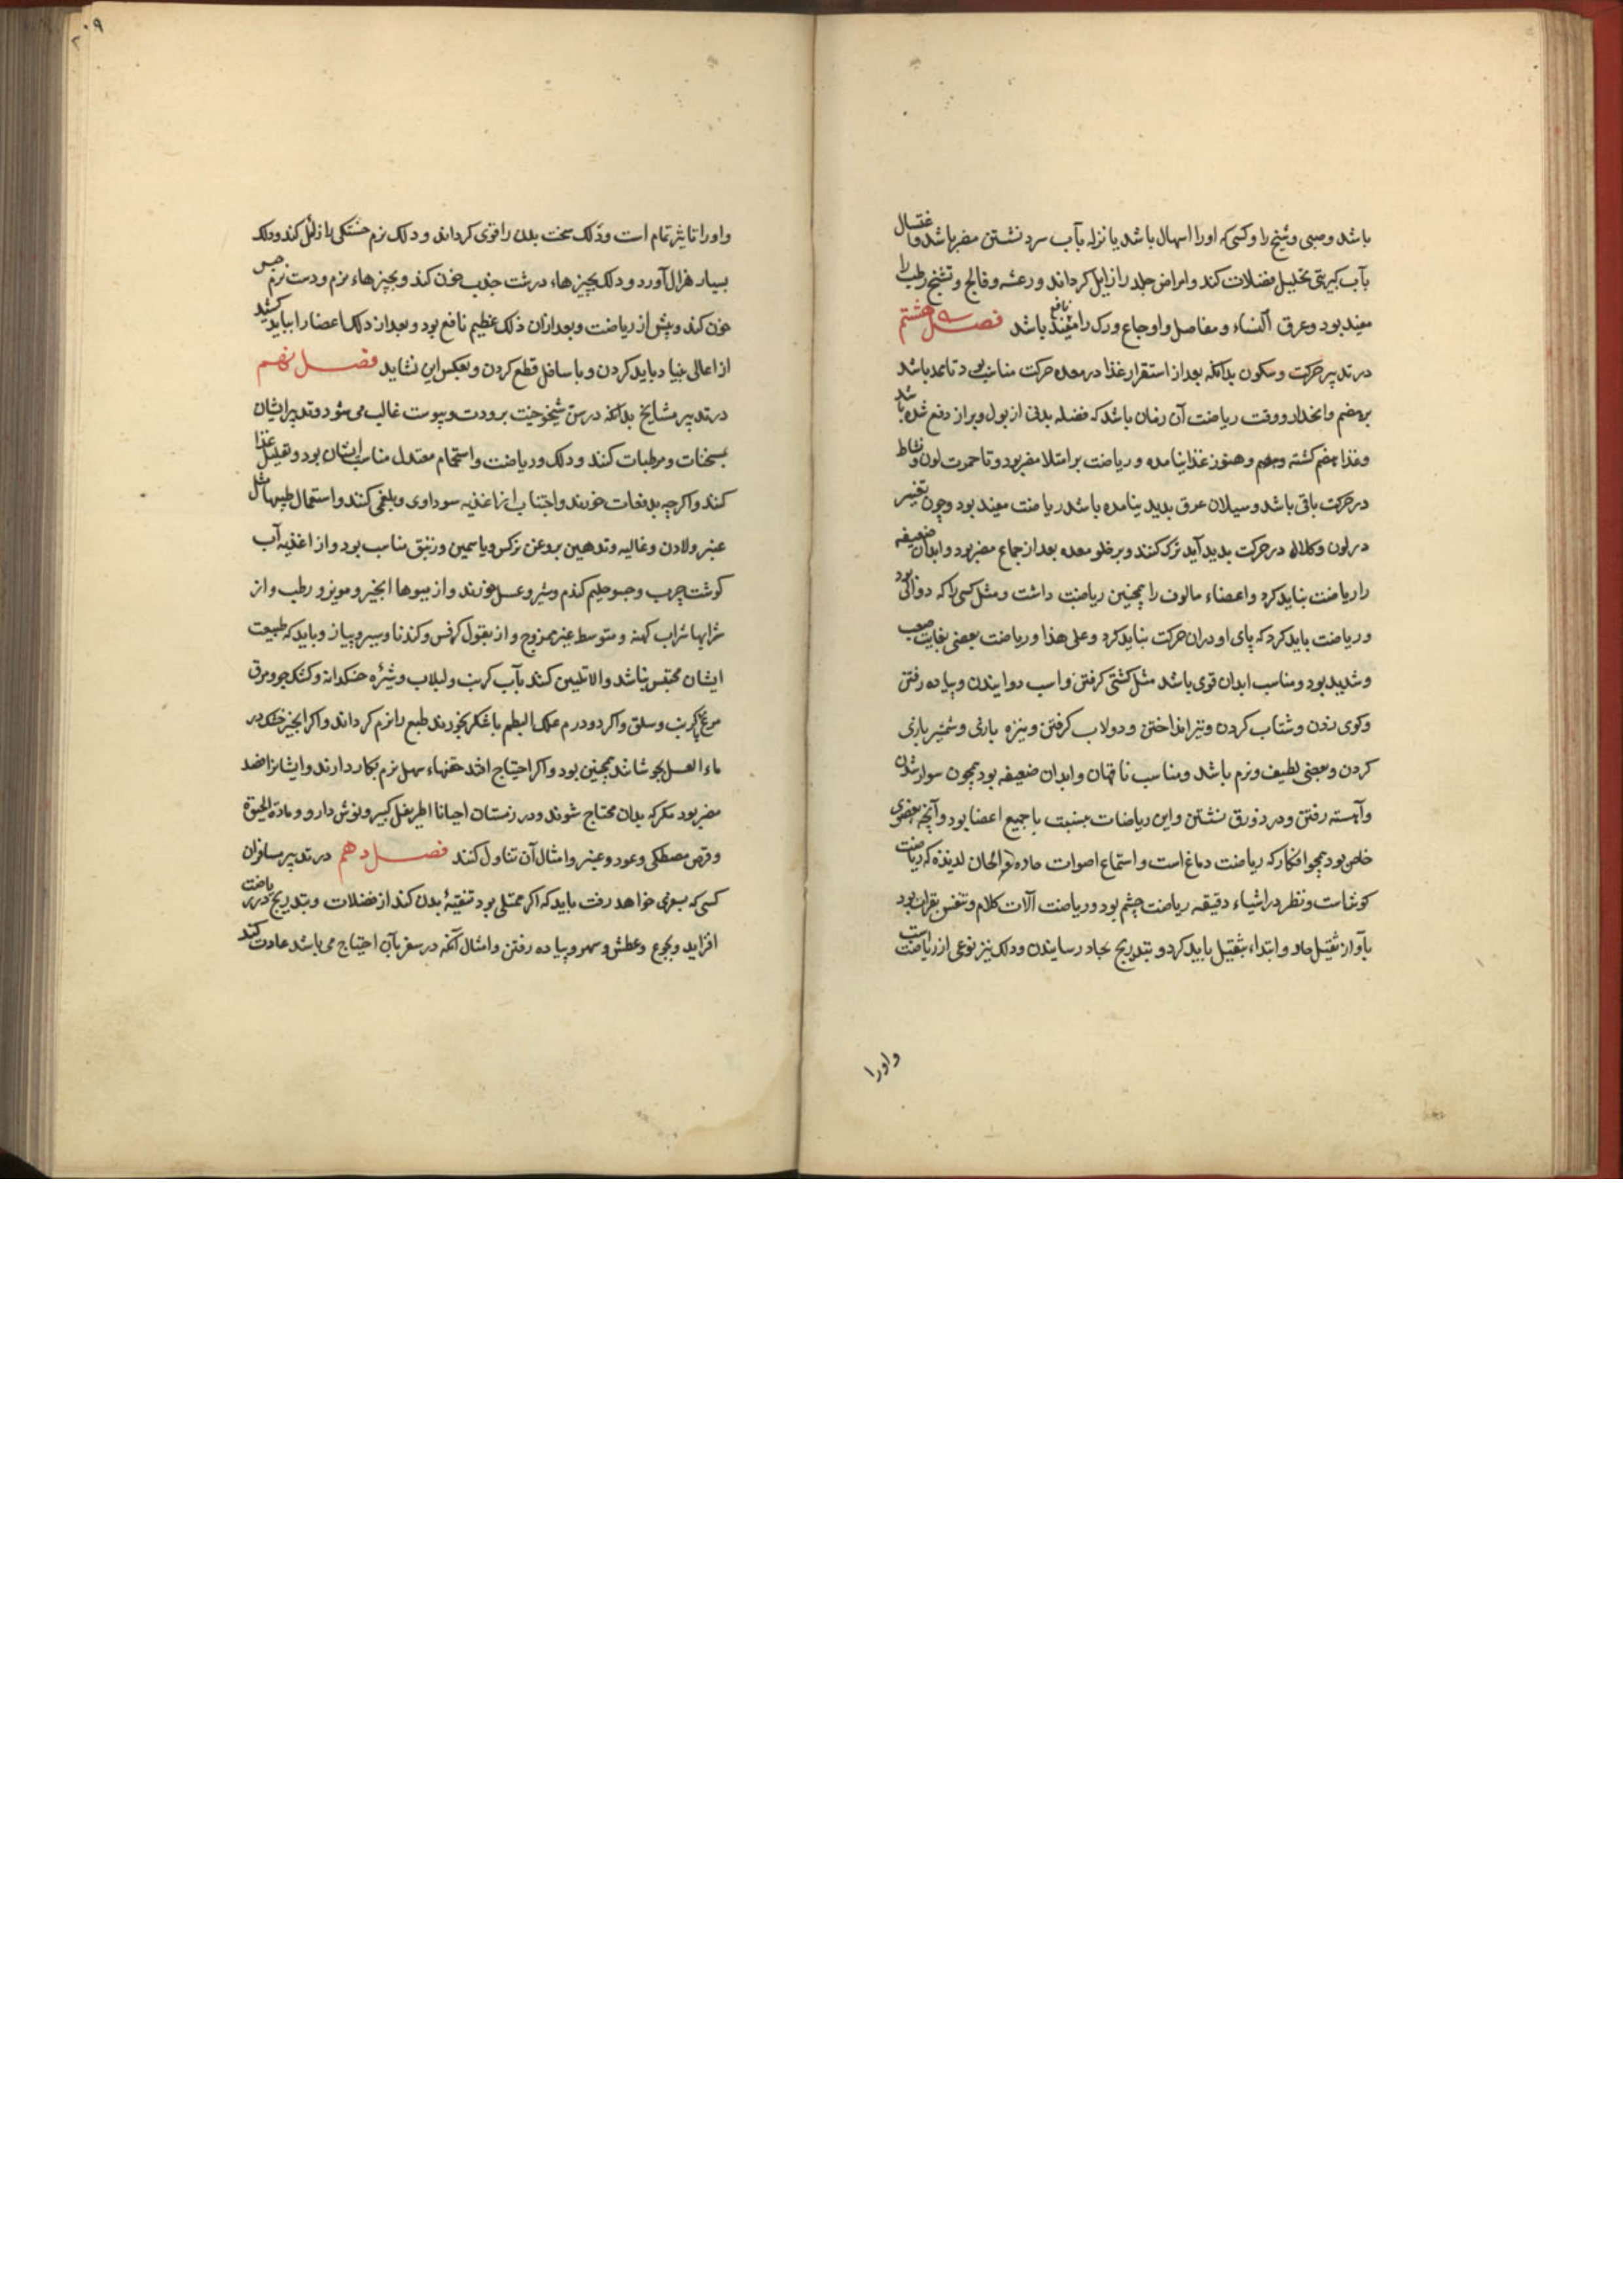 باشد و صبی و شیخ را و کسی که او را اسهال باشد یا نزله بآب سرد نشستن مضر باشد و اغتسال
بآب کبریتی تحلیل فضلات کند و امراض جلد را زایل کرداند و رعشه و فالج و تشنج رطب را
مفید بود و عرق النساء و مفاصل و اوجاع ورک را نافع باشد فصل هشتم
در تدبیر حرکت و سکون بدانکه بعد از استقرار غذا در معده حرکت مناسب بود تا ممد باشد
بر هضم و انحدار و وقت ریاضت آن زمان باشد که فضله بدنی از بول و براز دفع شده باشد
و غذا هضم کشته و هنوز غذا نیامده و ریاضت بر امتلا مضر بود و تا حمرت لون و نشاط
در حرکت باقی باشد و سیلان عرق بدید نیامده باشد ریاضت مفید بود و چون تغییر
در لون و کلاله در حرکت بدید آید ترک کنند و بر خلو معده بعد از جماع مضر بود و ابدان ضعیفه
را ریاضت نباید کرد و اعضاء مالوف را همچنین ریاضت داشت و مثل کسی را که دوالی بود
و ریاضت باید کرد که پای او در ان حرکت نباید کرد و علی هذا و ریاضت بعضی بغایت صعب
و شدید بود و مناسب ابدان قوی باشد مثل کشتی کرفتن و اسب دوانیدن و پیاده رفتن
و کوی زدن و شتاب کردن و تیر انداختن و دولاب کرفتن و نیزه بازی و شمشیر بازی
کردن و بعضی لطیف و نرم باشد و مناسب ناقهان و ابدان ضعیفه بود همچون سوار شدن
و آهسته رفتن و در زورق نشستن و این ریاضات بنسبت با جمیع اعضا بود و آنچه بعضوی
خاص بود همچو افکار که ریاضت دماغ است و استماع اصوات حاده و الحان لذیذه که ریاضت
کوشاست و نظر در اشیاء دقیقه ریاضت چشم بود و ریاضت آلات کلام و تنفس بقران بود
بآواز ثقیل حاد و ابتداء بثقیل باید کرد و بتدریج بحاد رسانیدن و دلک نیز نوعی از ریاضت است
واورا
٢٠٩
و او را تاثیر تمام است و دلک سخت بدن را قوی کرداند و دلک نرم خستکی را زایل کند و دلک
بسیار هزال آورد و دلک بچیزهاء درشت جذب خون کند و بچیزهاء نرم و دست نرم حبس
خون کند و پیش از ریاضت و بعد از ان دلک عظیم نافع بود و بعد از دلک اعضا را بباید کشید
از اعالی بنیاد باید کردن و با سافل قطع کردن و بعکس این نشاید فصل نهم
در تدبیر مشایخ بدانکه در سن شیخوخیت برودت و یبوست غالب می شود و تدبیر ایشان
بمسخنات و مرطبات کنند و دلک و ریاضت و استحمام معتدل مناسب ایشان بود و تقلیل غذا
کنند و اکرچه بدفعات خورند و اجتناب از اغذیه سوداوی و بلغمی کنند و استعمال طیبها مثل
عنبر و لادن و غالیه و تدهین بروغن نرکس و یاسمین و زنبق مناسب بود و از اغذیه آب
کوشت چرب و جو حلیم کندم و شیر و عسل خورند و از میوها انجیر و مویز و رطب و از
شرابها شراب کهنه و متوسط غیر ممزوج و از بقول کرفس و کندنا و سیر و پیاز و باید که طبیعت
ایشان محتبس نباشد و الا تلیین کنند بآب کرنب و لبلاب و شیره خسکدانه و کشک جو و مرق
مرغ بکرنب و سلق و اکر دو درم علک البطم با شکر بخورند طبع را نرم کرداند و اکر انجیر خشک در
ماء العسل بجوشانند همچنین بود و اکر احتیاج افتد حقنهاء سهل نرم بکار دارند و ایشانرا فصد
مضر بود مکر که بدان محتاج شوند و در زمستان احیانا اطریفل کبیر و نوش دارو و مادة الحیوة
و قرص مصطکی و عود و عنبر و امثال آن تناول کنند فصل دهم در تدبیر مسافران
کسی که بسفری خواهد رفت باید که اکر ممتلی بود تنقیهٔ بدن کند از فضلات و بتدریج در ریاضت
افزاید و بجوع و عطش و سهر و پیاده رفتن و امثال آنکه در سفر بآن احتیاج می باشد عادت کند